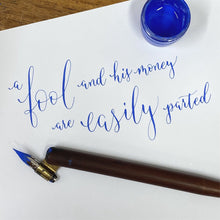 a fool and his money
are easily parted